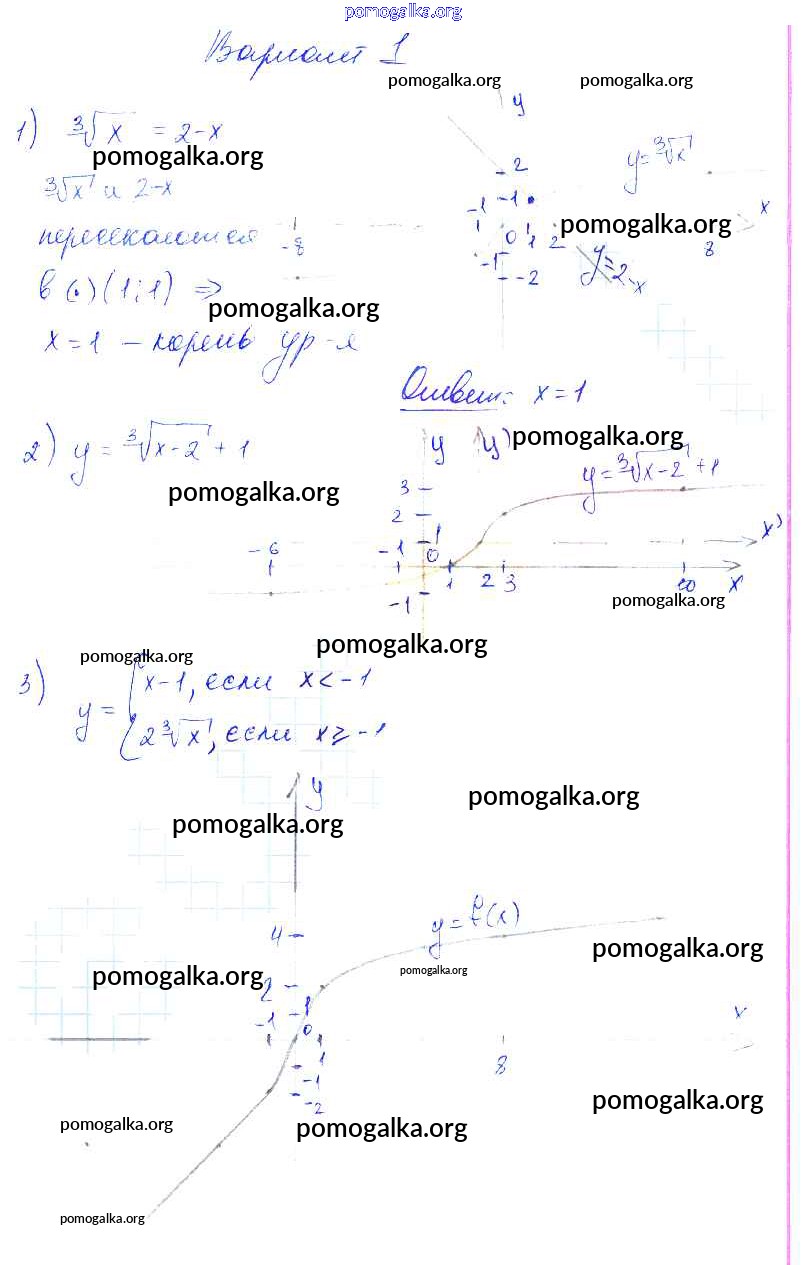 pomogalka.org
Вариант 1
pomogalka.org pomogalka.org
1) ∛x = 2-x
pomogalka.org
∛x и 2-x
пересекаются
в (•) (1;1) ⇒
x = 1 – корень ур-я
pomogalka.org
y
2
1
-1
0 1 2
-1
-2
-8
8
x
y=∛x
y=2-x
pomogalka.org
Ответ: x = 1
2) y = ∛x-2 + 1
pomogalka.org
y y'
pomogalka.org
y=∛x-2 +1
3
2
1
-6
-1
0
1 2 3
10
x'
x
-1
pomogalka.org
pomogalka.org
pomogalka.org
3)
y = { x-1, если x < -1
2∛x, если x ≥ -1
y
pomogalka.org
pomogalka.org
y=f(x)
4
pomogalka.org
pomogalka.org
pomogalka.org
2
1
-1
0
x
1
8
-1
-2
pomogalka.org
pomogalka.org
pomogalka.org
pomogalka.org